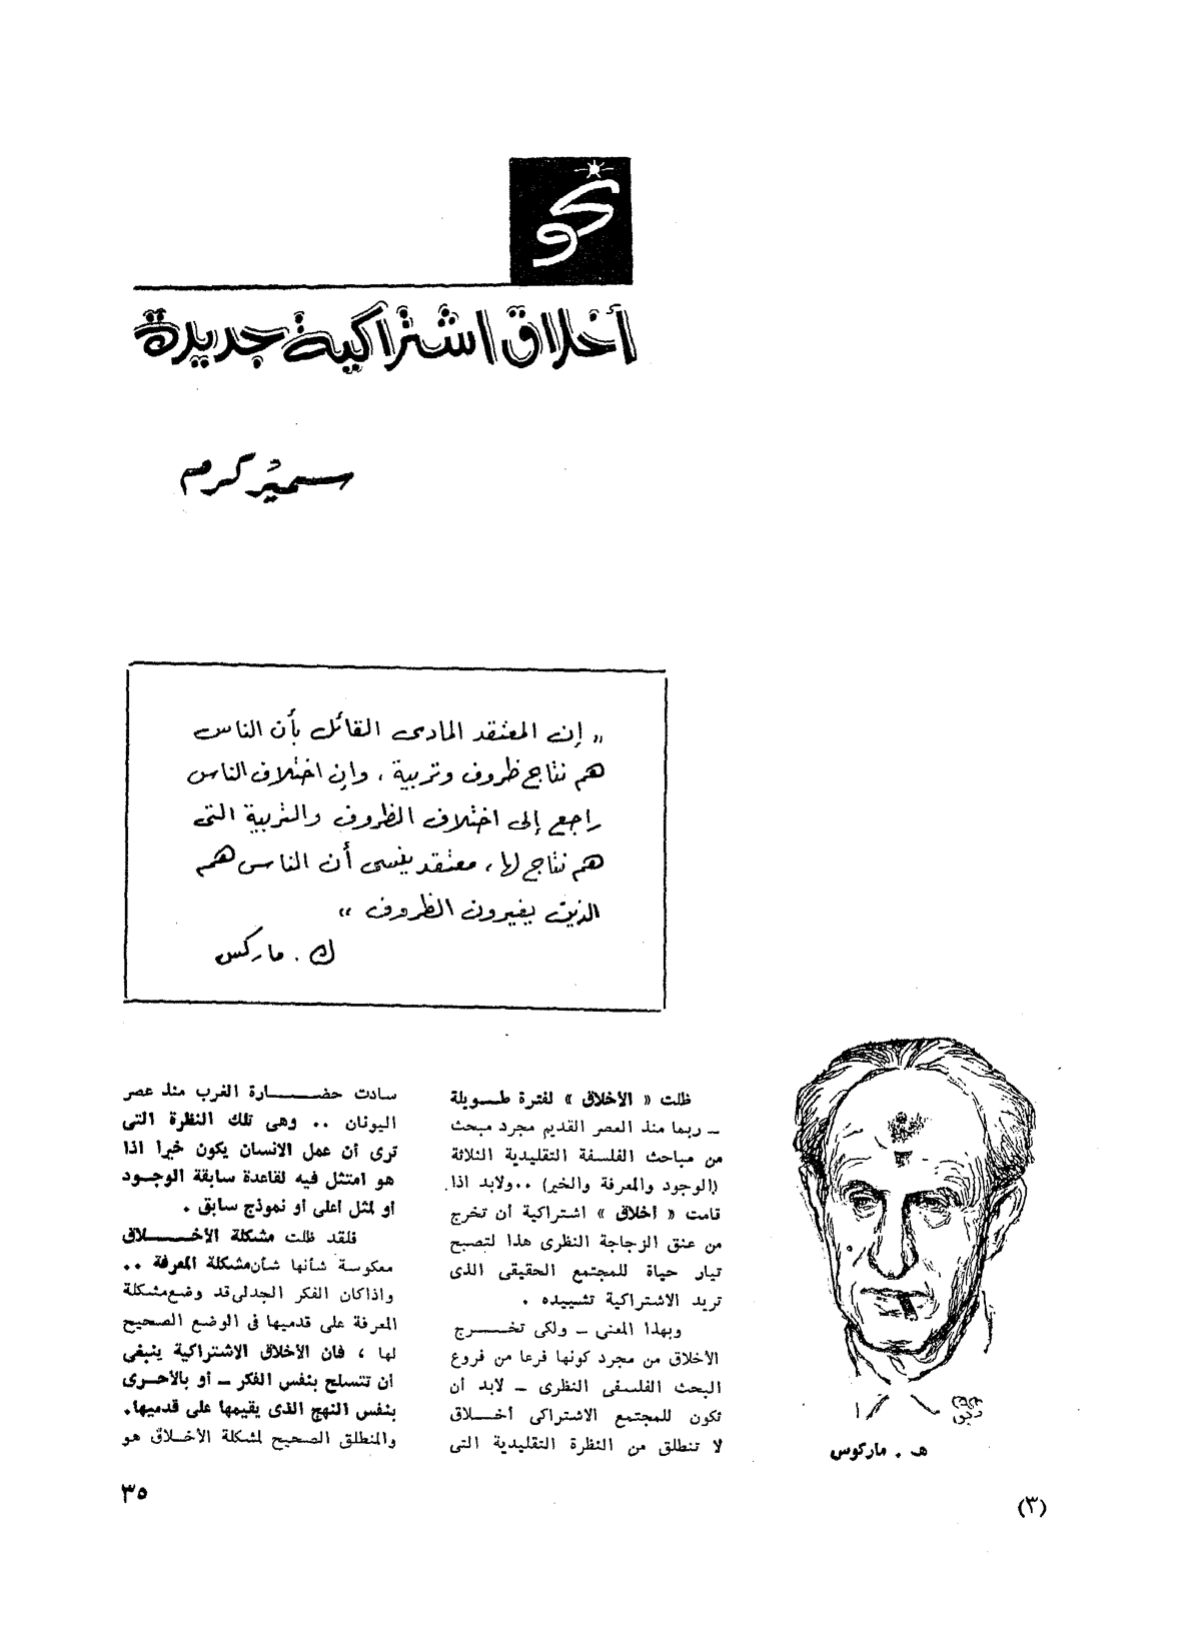 نحو
أخلاق اشتراكية جديدة
سمير كرم
« إن المعتقد المادى القائل بأن الناس
هم نتاج ظروف وتربية ، وإن اختلاف الناس
راجع إلى اختلاف الظروف والتربية التى
هم نتاج لها ، معتقد ينسى أن الناس هم
الذين يغيرون الظروف »
ك . ماركس
ظلت « الأخلاق » لفترة طــويلة
ــ ربما منذ العصر القديم مجرد مبحث
من مباحث الفلسفة التقليدية الثلاثة
(الوجود والمعرفة والخير) ..ولابد اذا
قامت « أخلاق » اشتراكية أن تخرج
من عنق الزجاجة النظرى هذا لتصبح
تيار حياة للمجتمع الحقيقى الذى
تريد الاشتراكية تشييده .
وبهذا المعنى ــ ولكى تخــــرج
الأخلاق من مجرد كونها فرعا من فروع
البحث الفلسفى النظرى ــ لابد أن
تكون للمجتمع الاشتراكى أخــلاق
لا تنطلق من النظرة التقليدية التى
سادت حضــــــــارة الغرب منذ عصر
اليونان .. وهى تلك النظرة التى
ترى أن عمل الانسان يكون خيرا اذا
هو امتثل فيه لقاعدة سابقة الوجــود
أو لمثل اعلى أو نموذج سابق .
فلقد ظلت مشكلة الأخــــــلاق
معكوسة شأنها شأن مشكلة المعرفة ..
واذا كان الفكر الجدلى قد وضع مشكلة
المعرفة على قدميها فى الوضع الصحيح
لها ، فان الأخلاق الاشتراكية ينبغى
أن تتسلح بنفس الفكر ــ أو بالأحــرى
بنفس النهج الذى يقيمها على قدميها.
والمنطلق الصحيح لمشكلة الأخــلاق هو
هـ . ماركوس
٣٥
(٣)